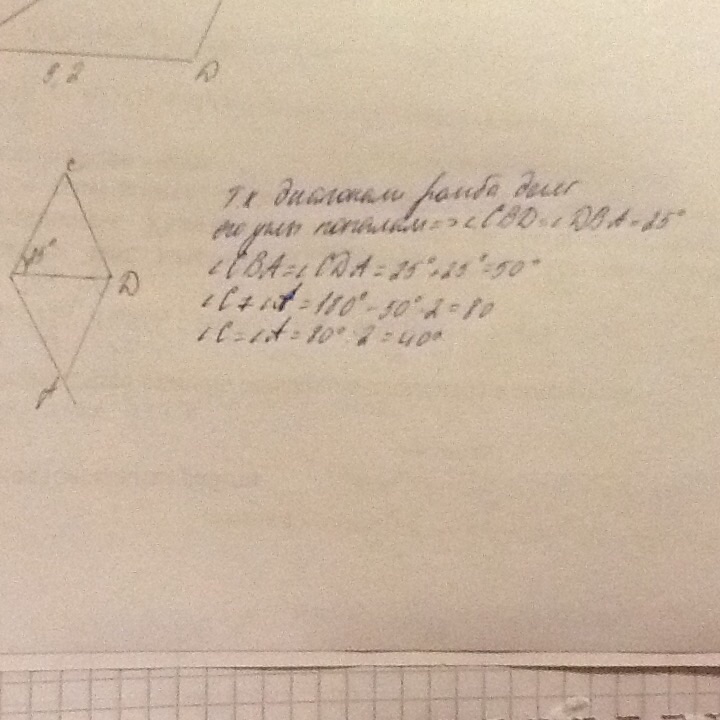 5,2 D
C
25°
D
A
Т.к диагонали ромба делят
его углы пополам => ∠CBD = ∠DBA = 25°
∠CBA = ∠CDA = 25° + 25° = 50°
∠C + ∠A = 180° - 50° · 2 = 80
∠C = ∠A = 80° : 2 = 40°